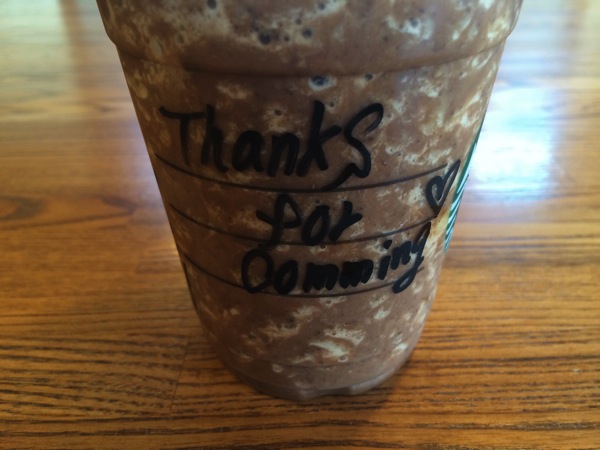 Thanks
for
Comming